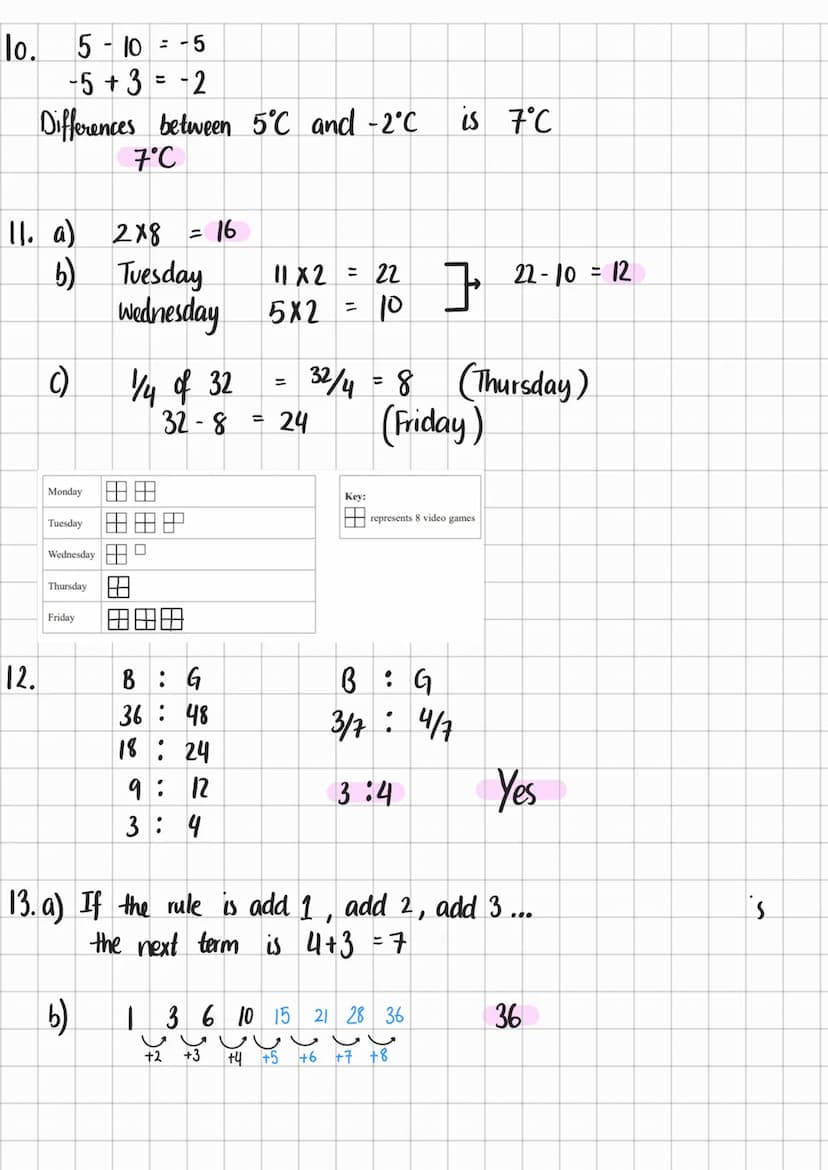 10. 5 - 10 = -5
-5 + 3 = -2
Differences between 5°C and -2°C is 7°C
7°C
11. a) 2×8 = 16
b) Tuesday 11 × 2 = 22 22 - 10 = 12
Wednesday 5×2 = 10
c) 1/4 of 32 = 32/4 = 8 (Thursday)
32 - 8 = 24 (Friday)
Monday
Tuesday
Wednesday
Thursday
Friday
Key:
represents 8 video games
12. B : G B : G
36 : 48 3/7 : 4/7
18 : 24
9 : 12 3 : 4 Yes
3 : 4
13. a) If the rule is add 1, add 2, add 3 ... 's
the next term is 4+3 = 7
b) 1 3 6 10 15 21 28 36 36
+2 +3 +4 +5 +6 +7 +8